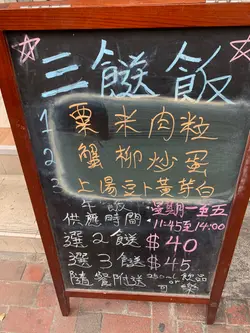 三餸飯
1 粟米肉粒
2 蟹柳炒蛋
3 上湯豆卜黃芽白
午飯
供應時間
:星期一至五
:11:45至14:00
選2餸 $40
選3餸 $45
隨餐附送
250ml 飲品
or